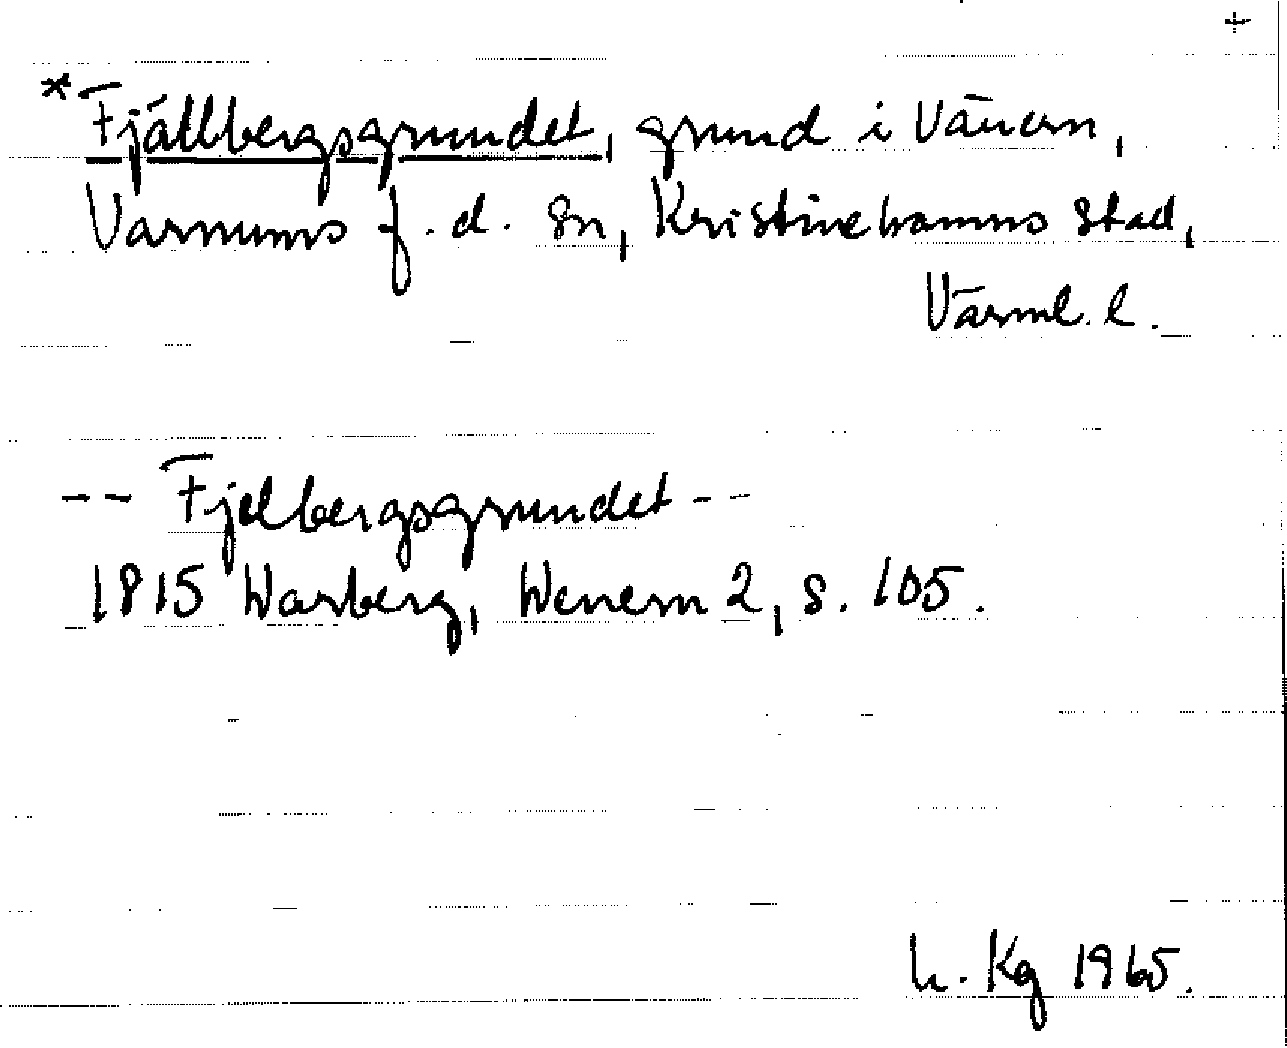 +
*Fjällbergsgrundet, grund i Vänern,
Varnums f.d. sn, Kristinehamns stad,
Värml. l.
-- Fjelbergsgrundet --
1815 Warberg, Wenern 2, s. 105.
h. Kg 1965.